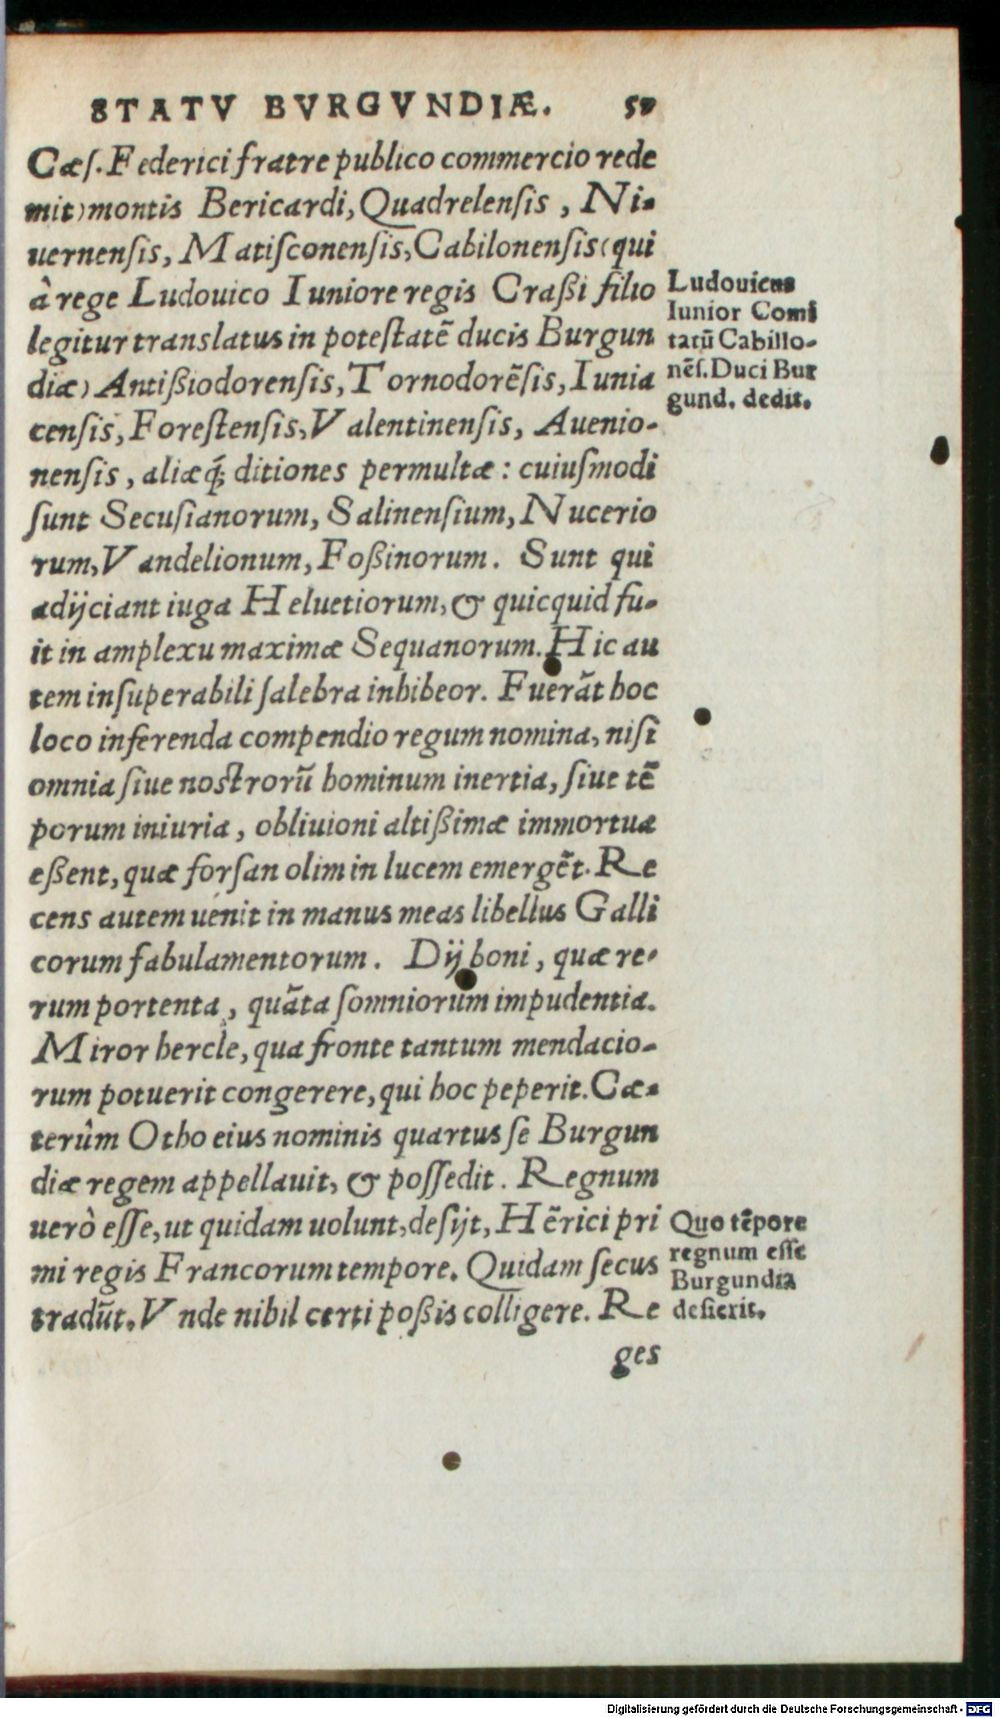 STATV BVRGVNDIÆ.
Cæſ. Federici fratre publico commercio rede
mit) montis Bericardi, Quadrelenſis, Ni-
uernenſis, Matiſconenſis, Cabilonenſis (qui
à rege Ludouico Iuniore regis Craßi filio
legitur translatus in poteſtatē ducis Burgun
diæ) Antißiodorenſis, Tornodorēſis, Iunia
cenſis, Foreſtenſis, Valentinenſis, Auenio-
nenſis, aliæq́; ditiones permultæ: cuiuſmodi
ſunt Secuſianorum, Salinenſium, Nucerio
rum, Vandelionum, Foßinorum. Sunt qui
adijciant iuga Heluetiorum, & quicquid fu-
it in amplexu maximæ Sequanorum. Hic au
tem inſuperabili ſalebra inhibeor. Fuerāt hoc
loco inferenda compendio regum nomina, niſi
omnia ſiue noſtrorū hominum inertia, ſiue tē
porum iniuria, obliuioni altißimæ immortuæ
eßent, quæ forſan olim in lucem emergēt. Re
cens autem uenit in manus meas libellus Galli
corum fabulamentorum. Dij boni, quæ re-
rum portenta, quāta ſomniorum impudentia.
Miror hercle, qua fronte tantum mendacio-
rum potuerit congerere, qui hoc peperit. Cæ-
terûm Otho eius nominis quartus ſe Burgun
diæ regem appellauit, & poſſedit. Regnum
uerò eſſe, ut quidam uolunt, deſijt, Hērici pri
mi regis Francorum tempore. Quidam ſecus
tradūt. Vnde nihil certi poßis colligere. Re
ges
Ludouicus
Iunior Comi
tatū Cabillo-
nēſ. Duci Bur
gund. dedit.
Quo tēpore
regnum eſſe
Burgundia
deſierit.
Digitalisierung gefördert durch die Deutsche Forschungsgemeinschaft - DFG